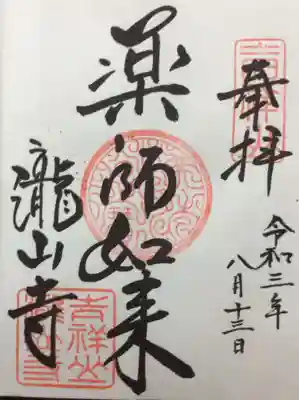 奉拝
令和三年
八月十三日
薬師如来
瀧山寺
吉祥山